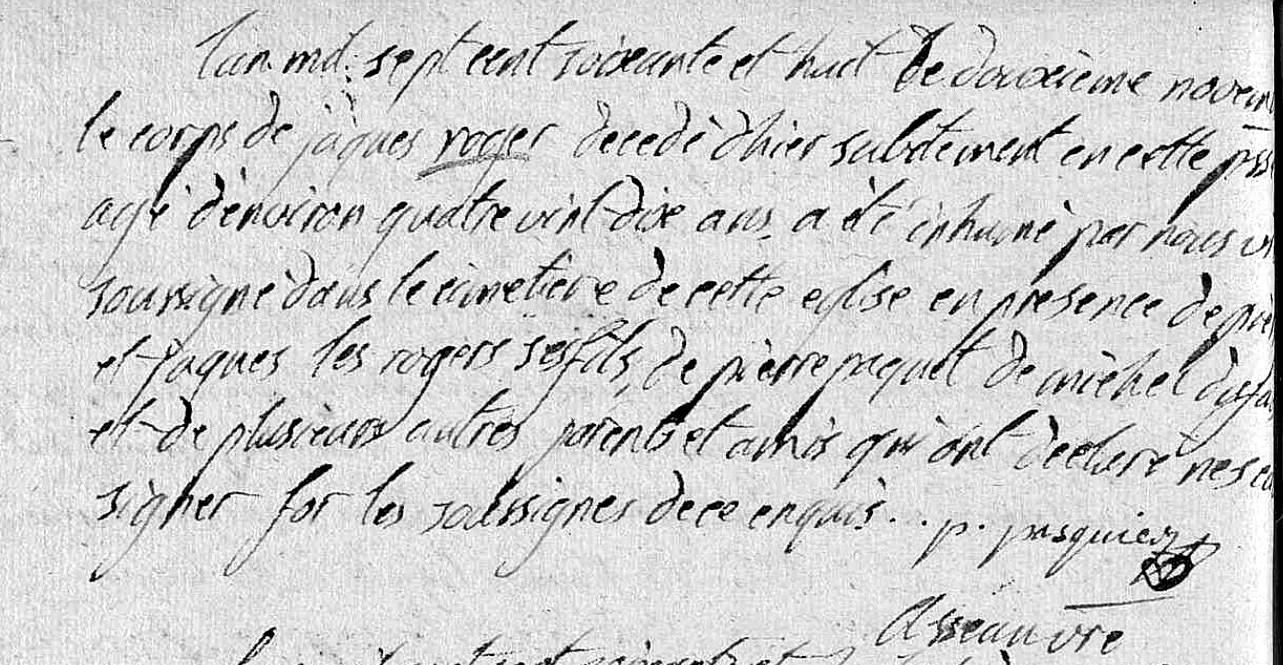 l'an mil sept cent soixante et huit le douxieme novem
le corps de jàques roger decedé d'hier subitement en cette pss
agé d'environ quatre vint-dix ans a été inhumé par nous
soussigné dans le cimetiere de cette eglise en presence de pier
et jaques les rogers ses fils, de pierre paquet de michel
et de plusieurs autres parents et amis qui ont declaré ne sca
signer for les soussignés de ce enquis... p. pasquier
Asseauvre